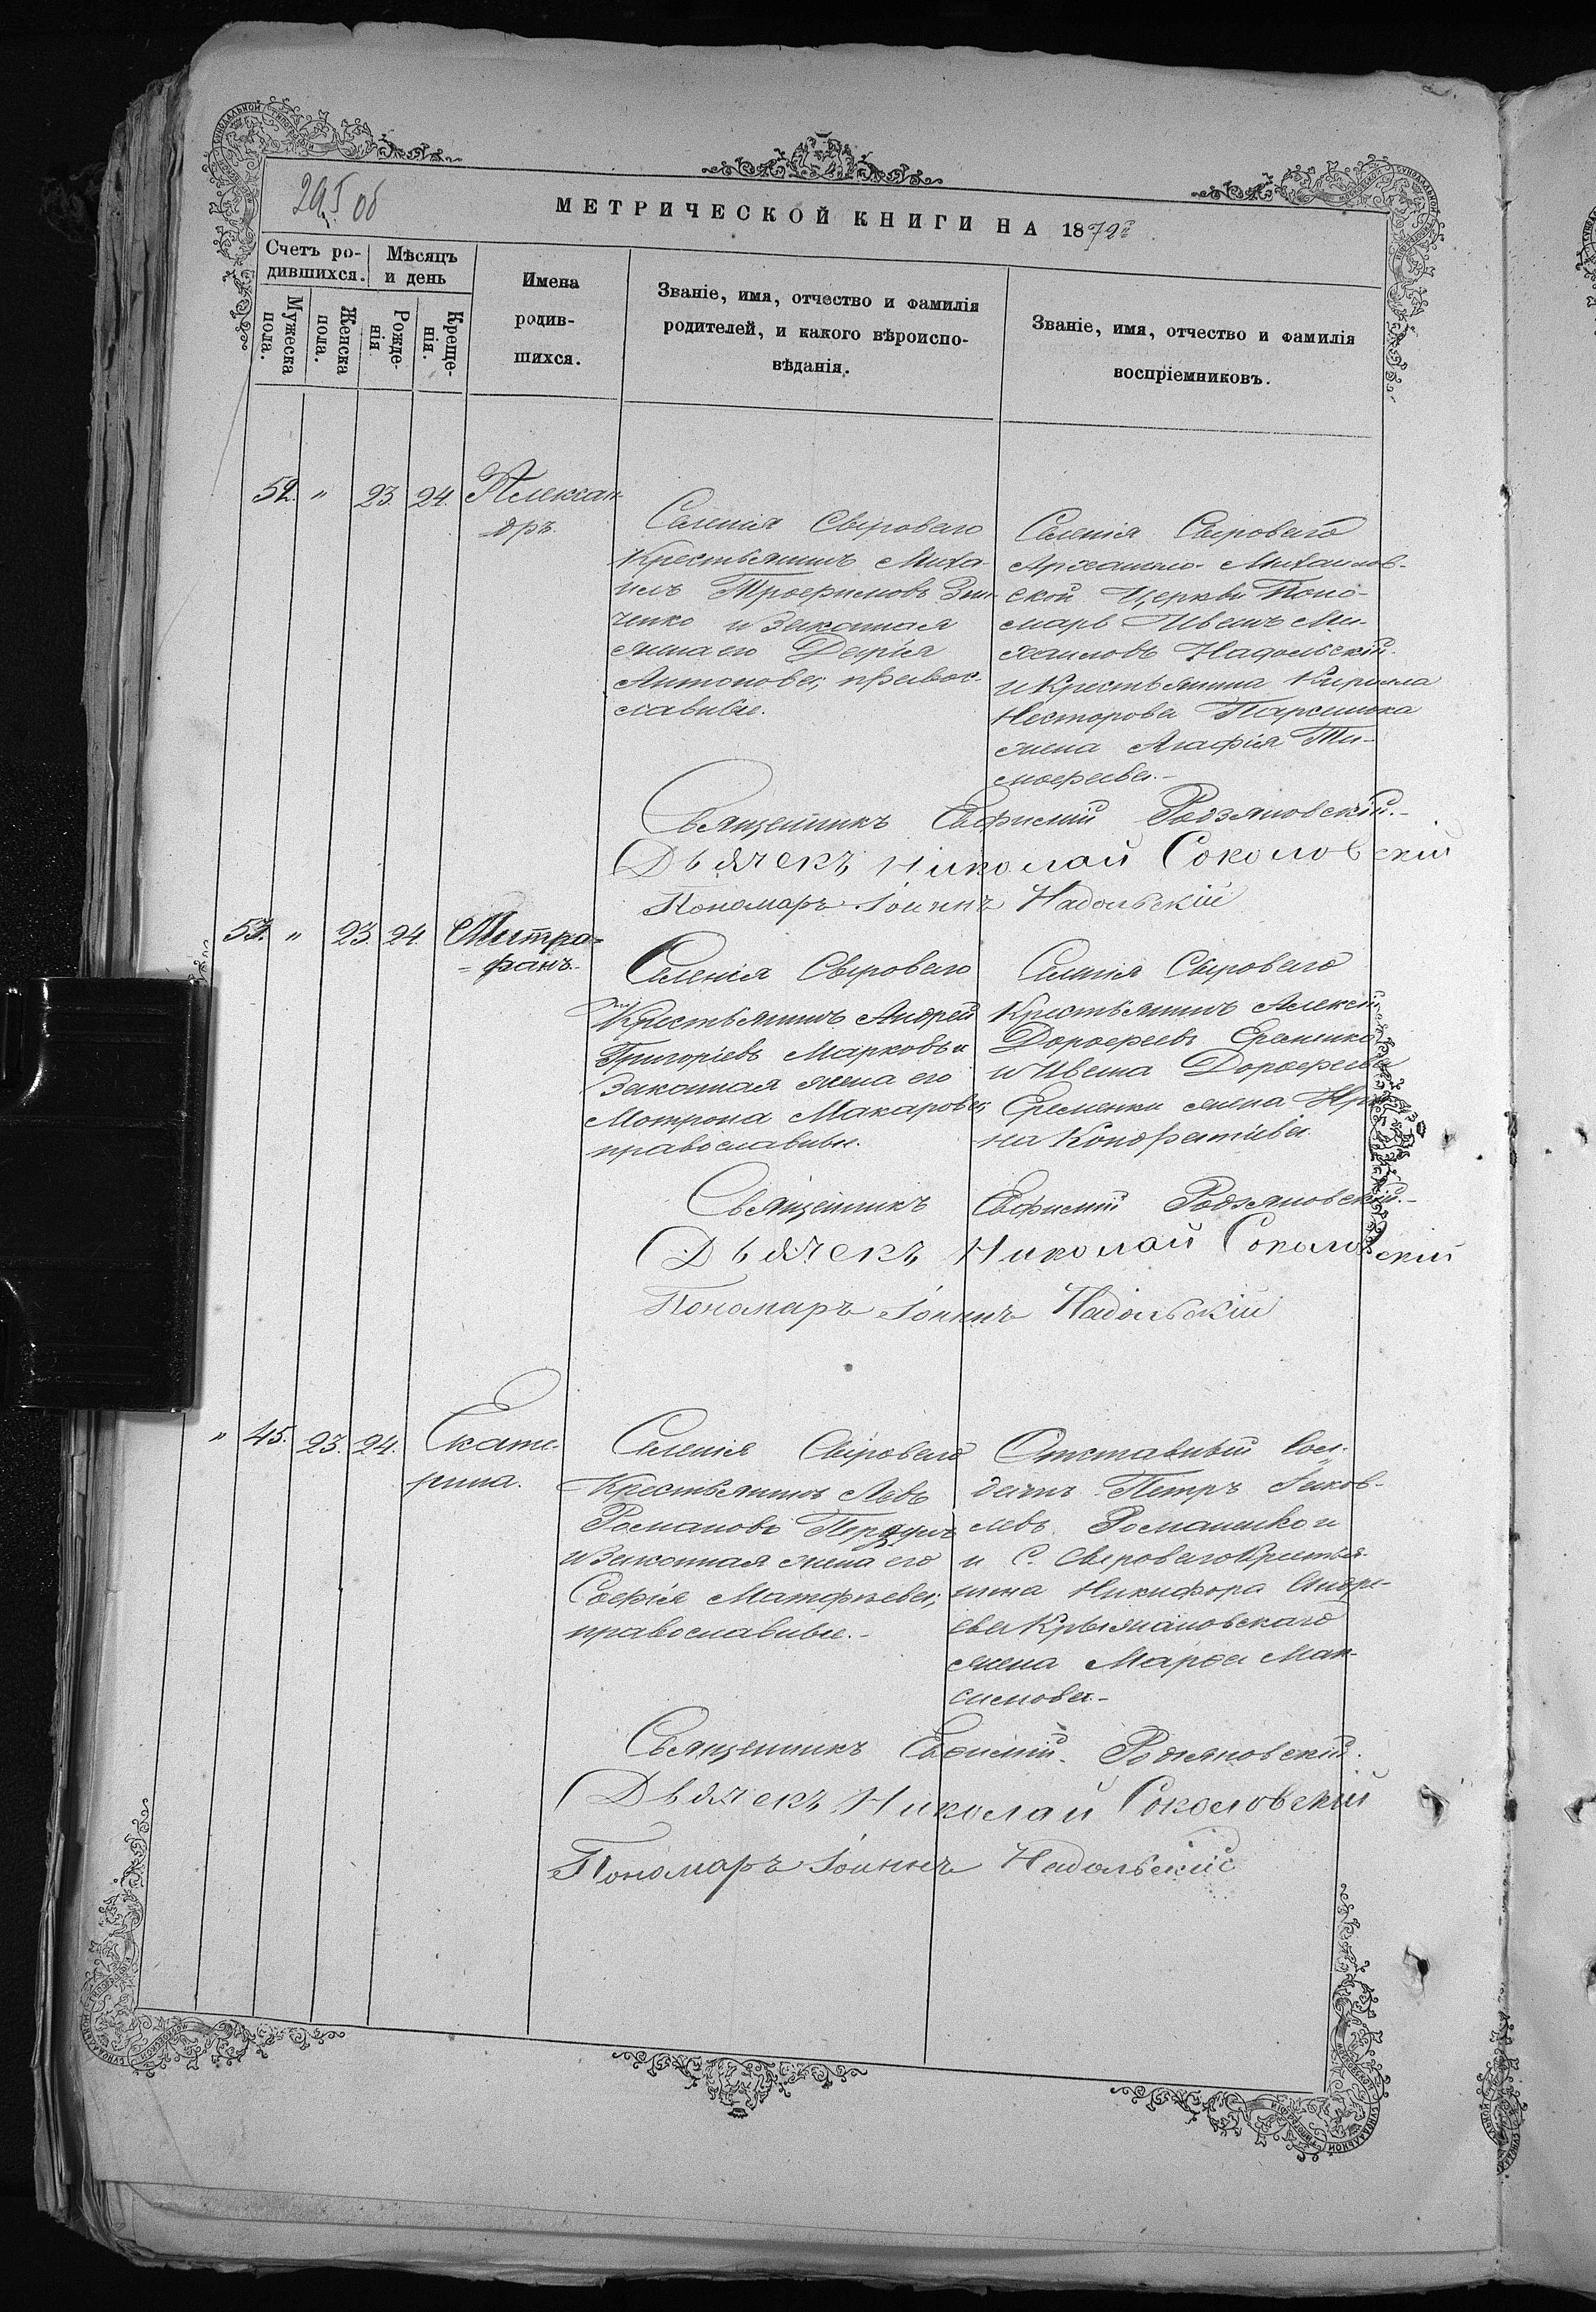 МЕТРИЧЕСКОЙ КНИГИ НА 1872й
Счетъ ро-
дившихся.
Мужеска
пола.
Женска
пола.
Мѣсяцъ
и день
Рожде-
нія
Креще-
нія.
Имена
родив-
шихся.
Званіе, имя, отчество и фамилія
родителей, и какого вѣроиспо-
вѣданія.
Званіе, имя, отчество и фамилія
воспріемниковъ.
52. " 23. 24.
Алексан-
дръ.
Селенія Сыроваго
Крестьянинъ Миха-
илъ Трофимовъ Зин-
ченко и Законная
жена его Дарія
Антонова, правос-
лавные.
Селенія Сыроваго
Архангело-Михаилов-
ской Церкви Поно-
марь Иванъ Ми-
хаиловъ Надольскій
и Крестьянина Кирила
Несторова
жена Агафія Ти-
мофеева.-
Священникъ Евфимій Родзяновскій.-
Дьячекъ Николай Соколовскій
Пономарь Іоаннъ Надольскій
53. " 23. 24.
Митро-
=фанъ.
Селенія Сыроваго
Крестьянинъ Андрей
Григоріевъ Марковъ и
Законная жена его
Мотрона Макарова,
православные.
Селенія Сыроваго
Крестьянинъ Алексѣй
Дорофеевъ Еременко
и Ивана Дорофеева
Еременки жена Ири-
на Кондратіева
Священникъ Евфимій Родзяновскій.-
Дьячекъ Николай Соколовскій
Пономарь Іоаннъ Надольскій
" 45. 23. 24.
Екате-
рина.
Селенія Сыроваго
Крестьянинъ Левъ
Романовъ
и Законная жена его
Софія Матфѣева,
православные.-
Отставный Сол-
датъ Петръ Яков-
левъ Романенко и
и С. Сыроваго Крестья-
нина Никифора Андре-
ева Крыжановскаго
жена Марѳа Мак-
симова.-
Священникъ Евфимій Родзяновскій.
Дьячекъ Николай Соколовскій
Пономарь Іоаннъ Надольскій